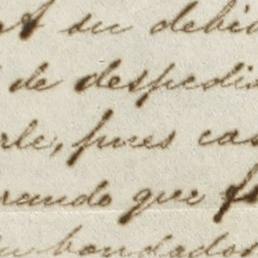 su debid
de despedi
rle, pues cas
rando que
su bondados